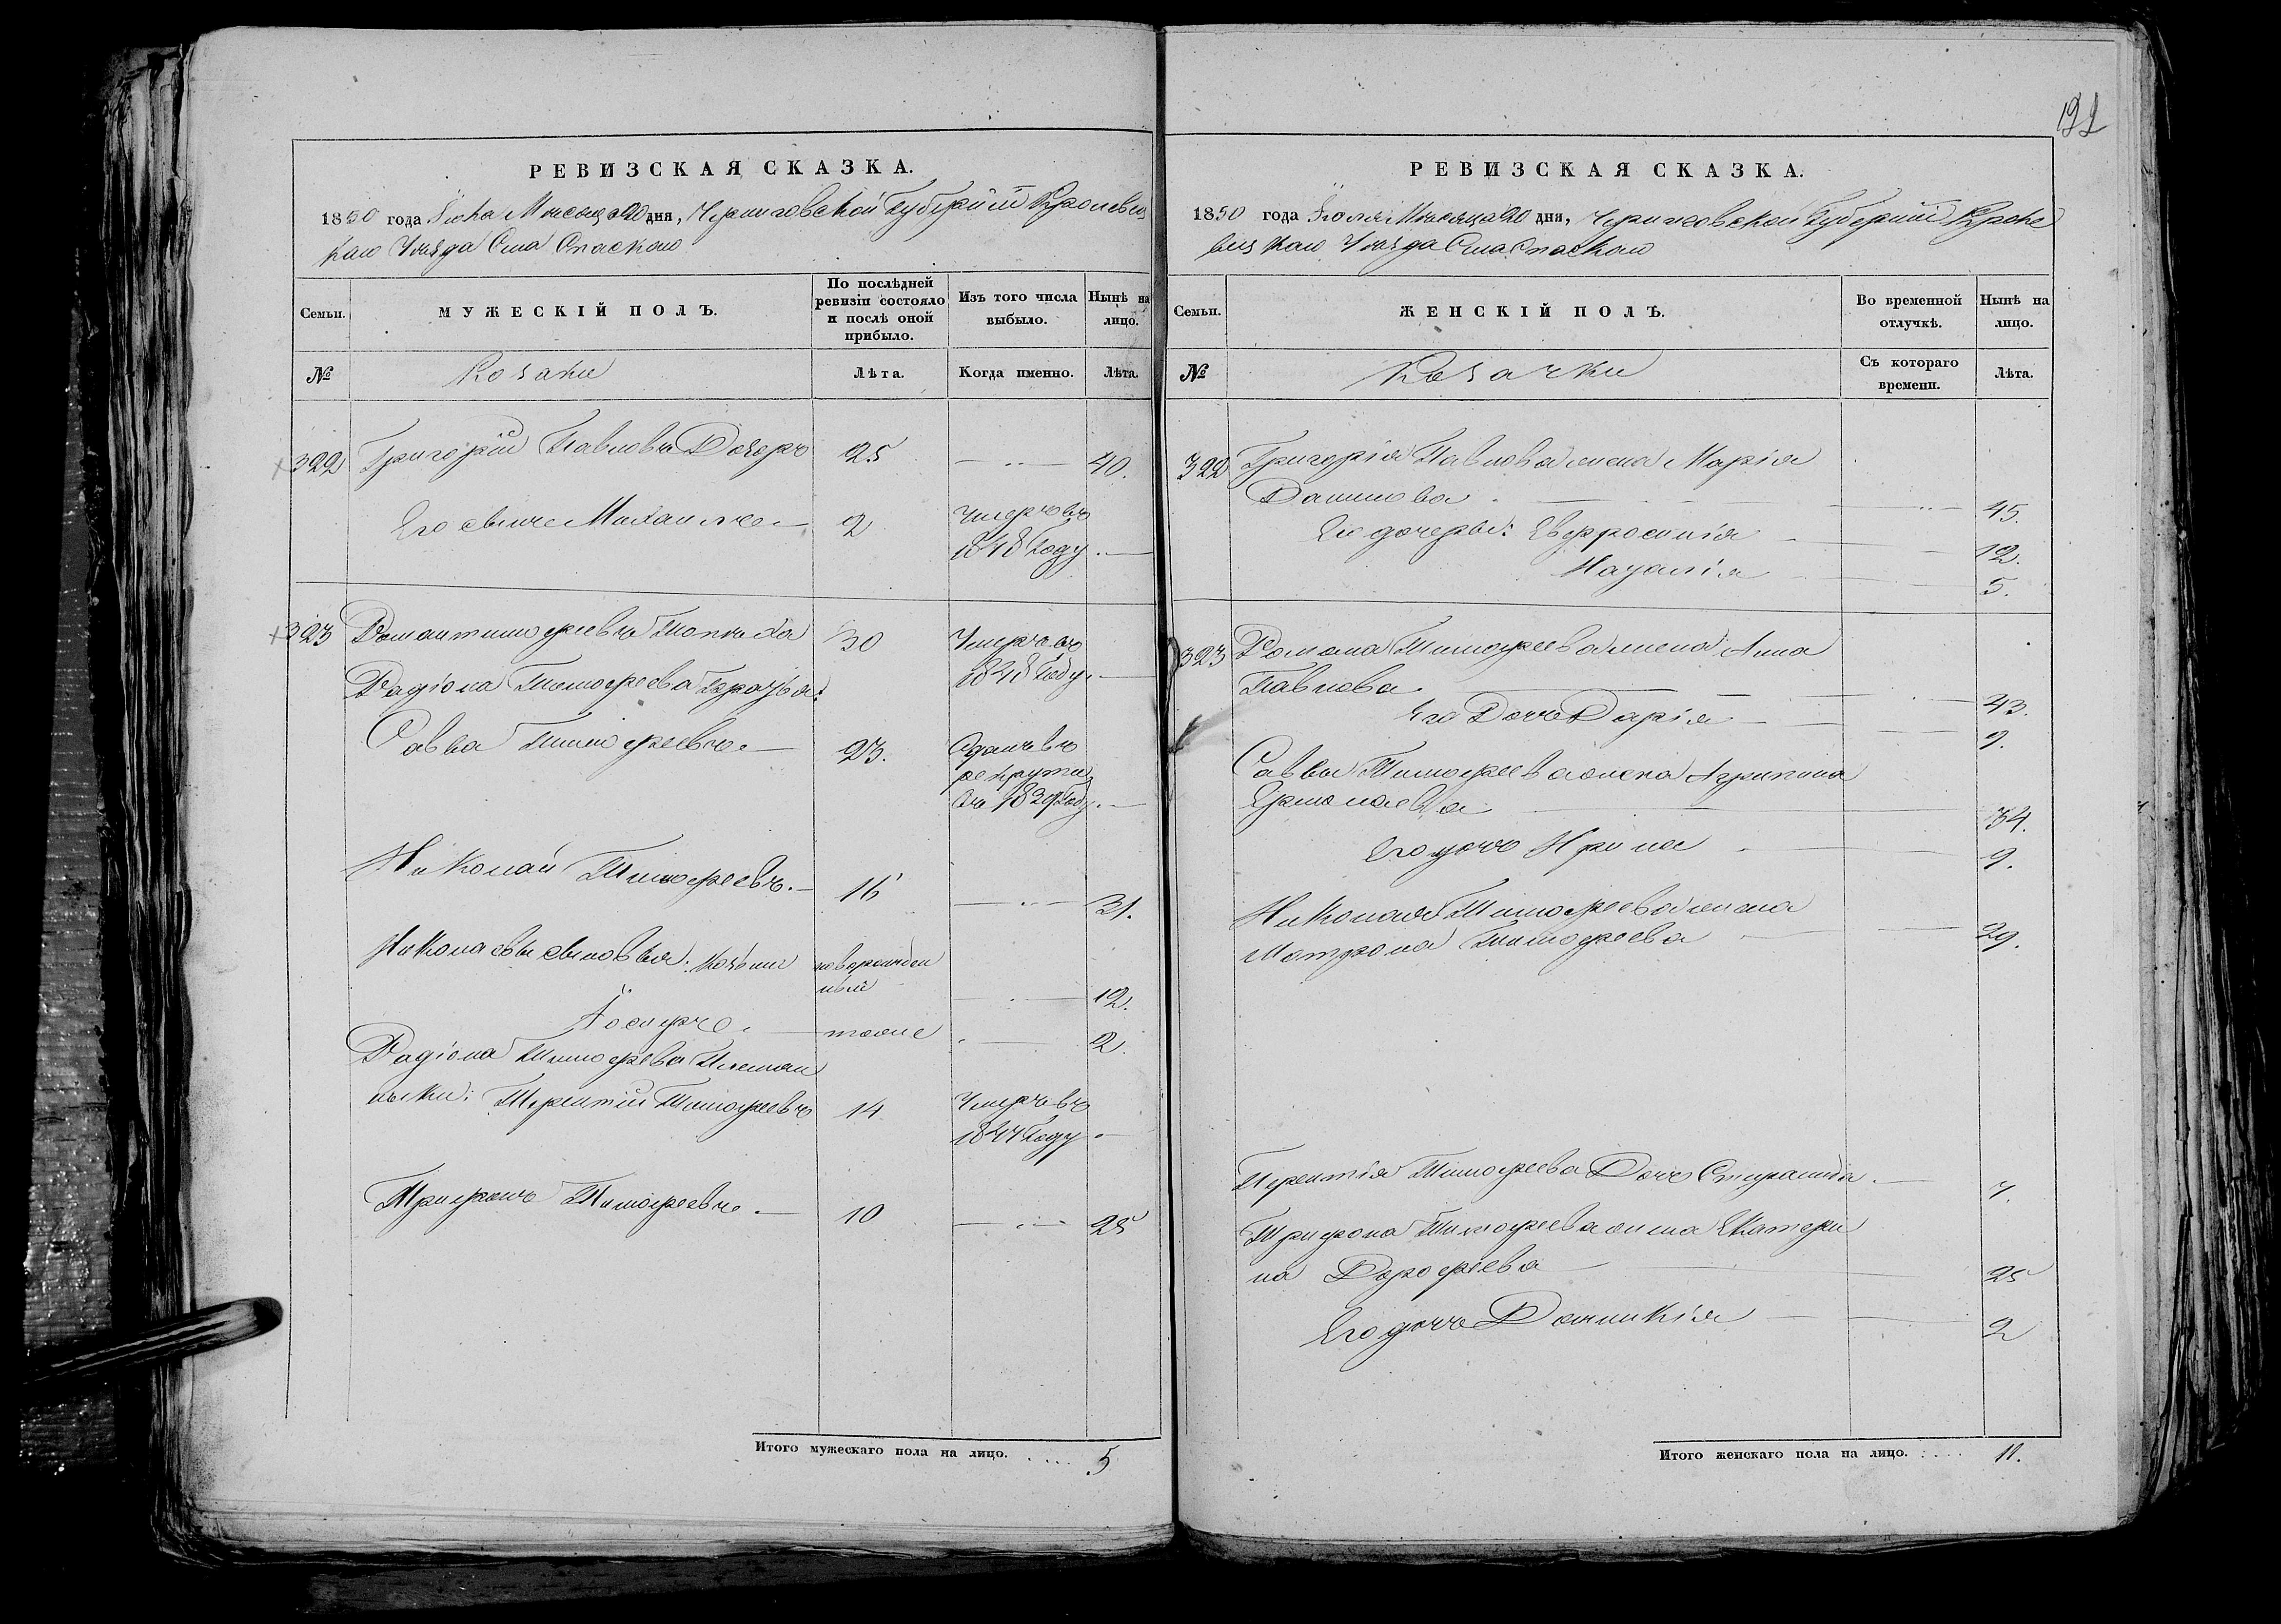 192
РЕВИЗСКАЯ СКАЗКА.
1850 года Іюля Месяца 20 дня, Черниговской Губерніи Кролевец
каго Уезда Села Спаскаго
Семьи.
МУЖЕСКІЙ ПОЛЪ.
По послѣдней ревизіи состояло и послѣ оной прибыло.
Изъ того числа выбыло.
Нынѣ на лицо.
№
Козаки
Лѣта.
Когда именно.
Лѣта.
322 Григорій Павловъ 25 40.
Его сынъ Михаилъ 2 Умеръ въ
1848 Году.
323 Романъ Тимофеевъ 30 Умеръ въ
1848 Году.
Радіона Тимофеева братья:
Савва Тимофеевъ 23. Отданъ въ
рекруты
въ 1839 Году.
Николай Тимофеевъ 16 31.
Николаевы сыновья: новорожден
ный 12.
Іосифъ тоже 2.
Радіона Тимофеева Племян
ники: Терентій Тимофеевъ 14 Умеръ въ
1844 Году
Трифонъ Тимофеевъ 10 25
Итого мужескаго пола на лицо. .... 5
РЕВИЗСКАЯ СКАЗКА.
1850 года Іюля Месяца 20 дня, Черниговской Губерніи Кроле
вецкаго Уезда Села Спаскаго
Семьи.
ЖЕНСКІЙ ПОЛЪ.
Во временной отлучкѣ.
Нынѣ на лицо.
№
Козачки
Съ котораго времени.
Лѣта.
322 Григорія Павлова жена Марія
Данилова 45.
Его дочеры: Евфросинія 12.
Наталія 5.
323 Романа Тимофеева жена Анна
Павлова 43.
Его Дочь Дарія 9.
Саввы Тимофеева жена Агрипина
Ермолаева 34.
Его дочь Ирина 9.
Николая Тимофеева жена
Матрона Тимофеева 29.
Терентія Тимофеева Дочь Степанида 7.
Трифона Тимофеева жена Екатери
на Дорофеева 25
Его дочь Домникія 2
Итого женскаго пола на лицо. .... 11.